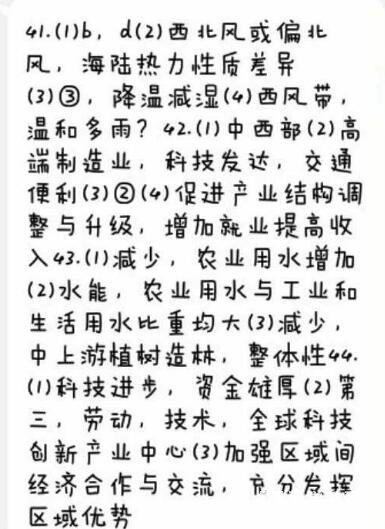 41.(1)b，d(2)西北风或偏北
风，海陆热力性质差异
(3)③，降温减湿(4)西风带，
温和多雨？42.(1)中西部(2)高
端制造业，科技发达，交通
便利(3)②(4)促进产业结构调
整与升级，增加就业提高收
入43.(1)减少，农业用水增加
(2)水能，农业用水与工业和
生活用水比重均大(3)减少，
中上游植树造林，整体性44.
(1)科技进步，资金雄厚(2)第
三，劳动，技术，全球科技
创新产业中心(3)加强区域间
经济合作与交流，充分发挥
区域优势